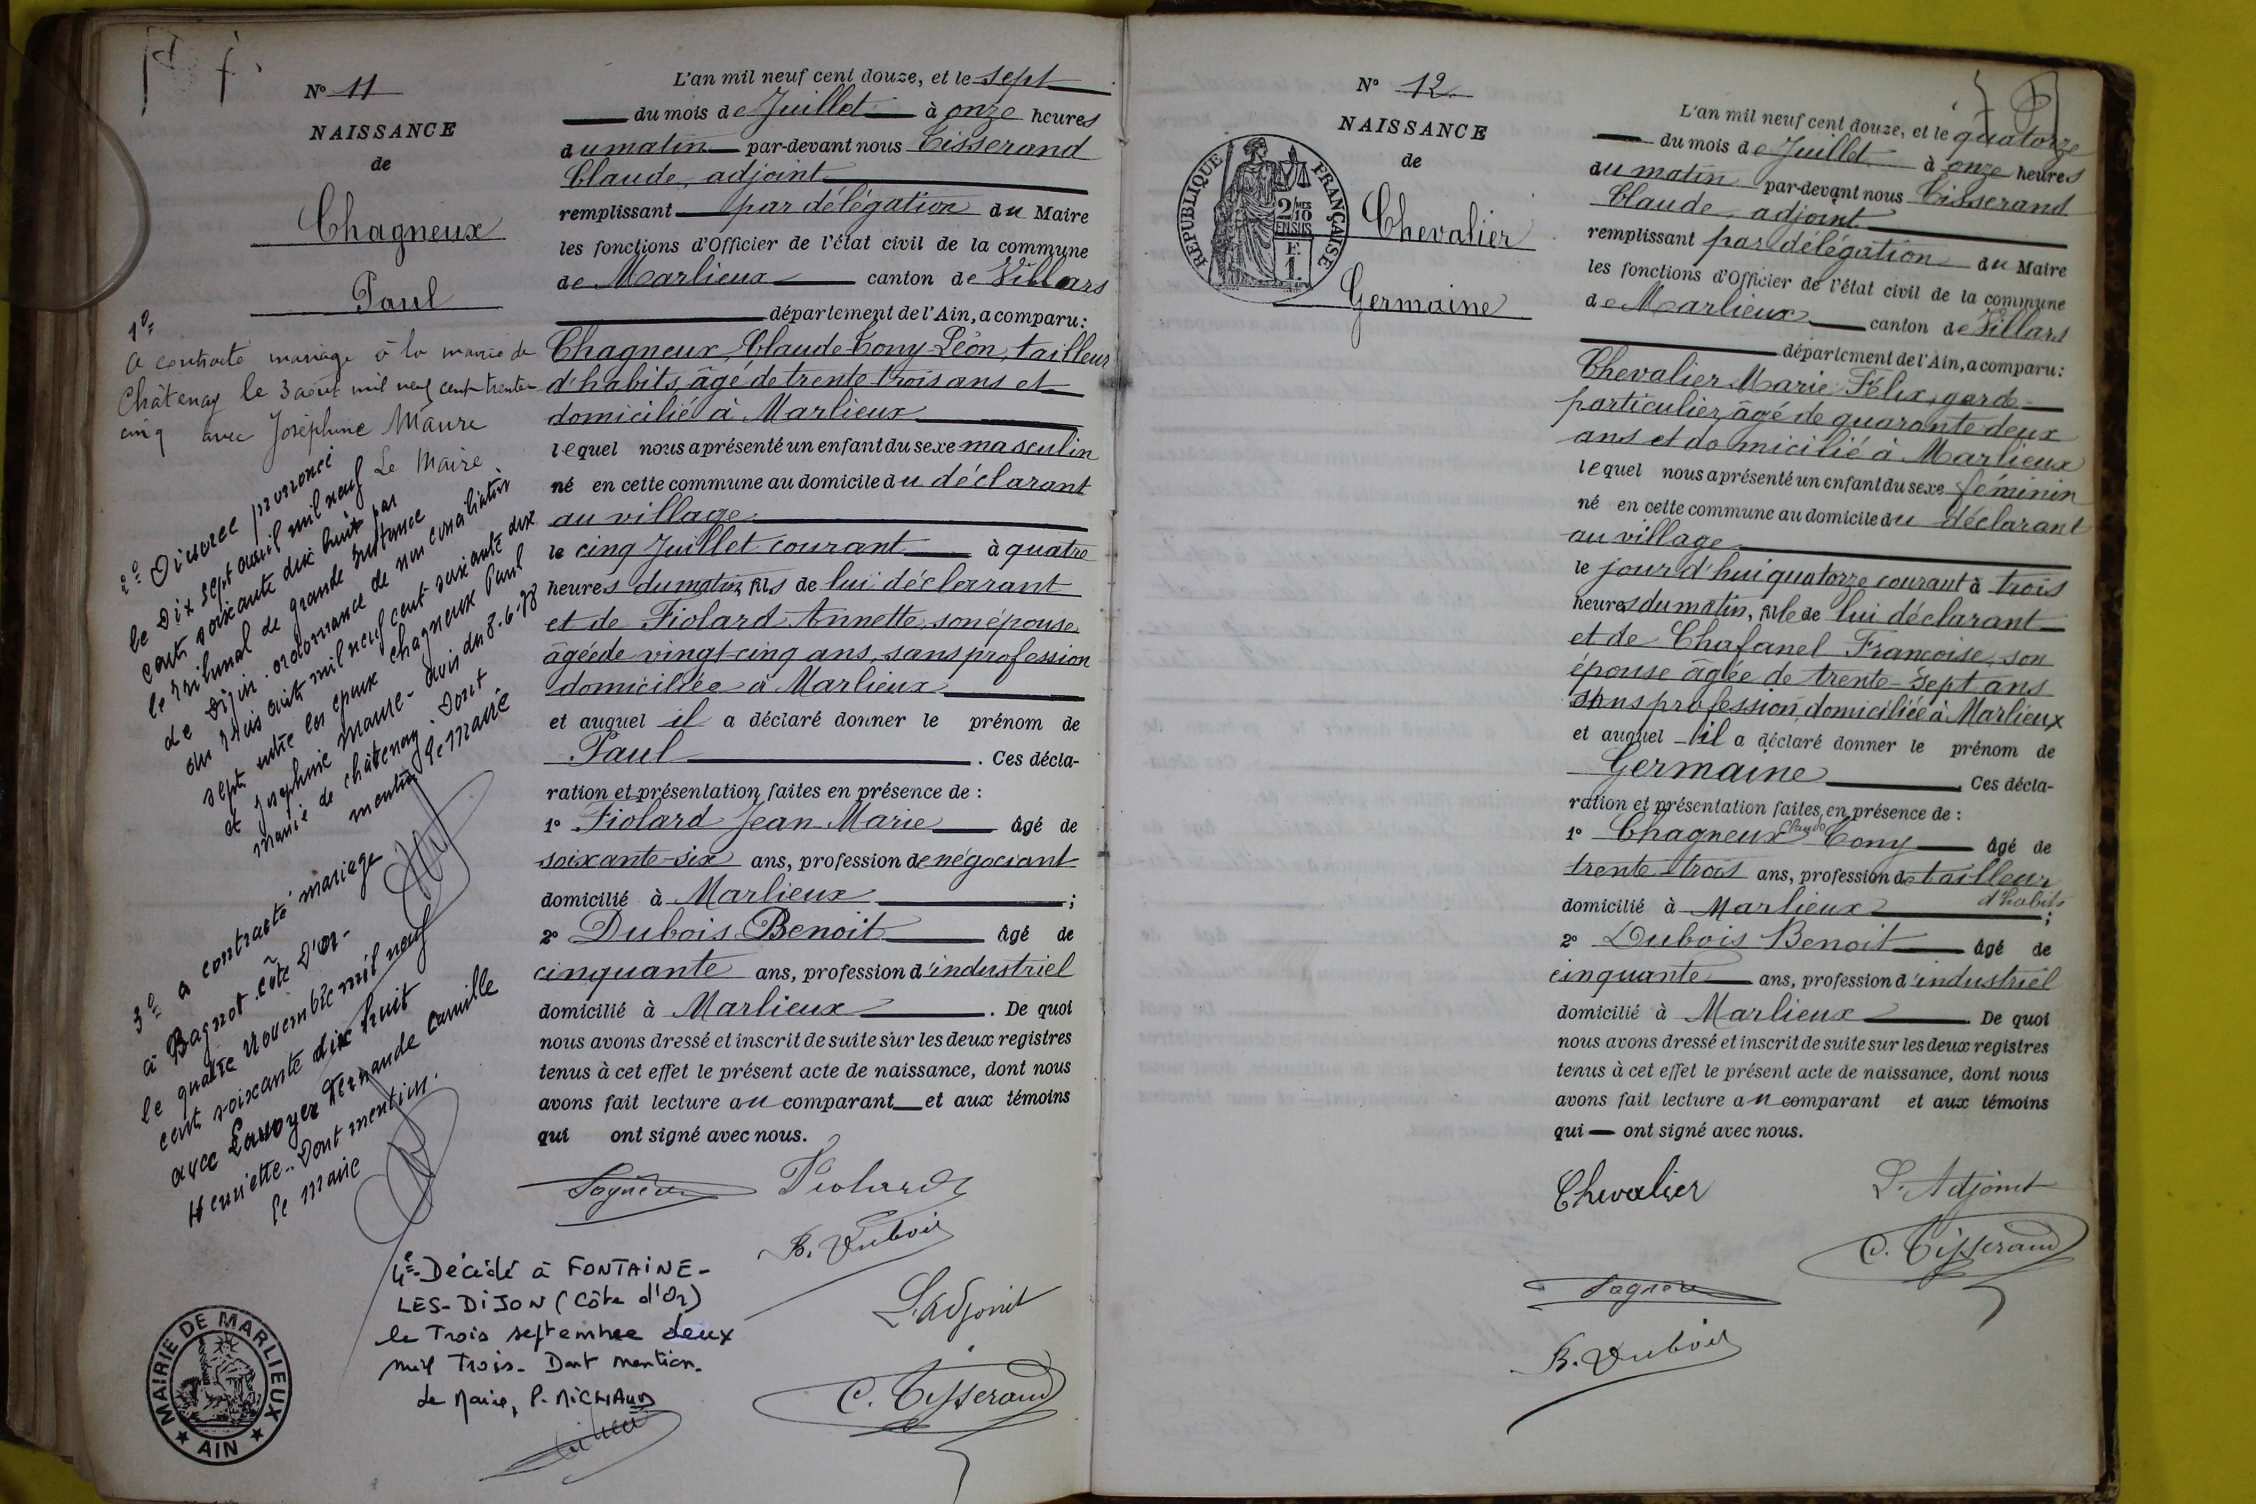 N° 11
NAISSANCE
de
Chagneux
Paul
1°=
A contracté mariage à la mairie de
Châtenay le 3 août mil neuf cent trente
cinq avec Joséphine Maure
Le Maire
2°= Divorce prononcé
le Dix sept avril mil neuf
cent soixante dix huit par
le Tribunal de grande instance
de Dijon. ordonnance de non conciliation
du trois août mil neuf cent soixante dix
sept entre les époux Chagneux Paul
et Josephine Maure - avis du 8.6.78
mairie de châtenay. Dont
mention Le Maire
3°= a contracté mariage
à Bagnot côte D'or -
le quatre Novembre mil neuf
cent soixante dix huit
avec Lanoyer Fernande Camille
Henriette.. Dont mention.
le maire
4°=- Décédé à FONTAINE-
LES-DIJON (Côte d'Or)
le Trois septembre deux
mil Trois. Dont mention.
Le Maire, P. MICHAUD
MAIRIE DE MARLIEUX
★ AIN ★
L'an mil neuf cent douze, et le sept
du mois de Juillet à onze heures
du matin par-devant nous Tisserand
Claude, adjoint
remplissant par délégation du Maire
les fonctions d'Officier de l'état civil de la commune
de Marlieux canton de Villars
département de l'Ain, a comparu:
Chagneux, Claude Tony Léon, tailleur
d'habits, âgé de trente trois ans et
domicilié à Marlieux
lequel nous a présenté un enfant du sexe masculin
né en cette commune au domicile du déclarant
au village
le cinq Juillet courant à quatre
heures du matin, fils de lui déclarant
et de Fiolard Annette, son épouse
âgée de vingt-cinq ans, sans profession
domiciliée à Marlieux
et auquel il a déclaré donner le prénom de
Paul . Ces décla-
ration et présentation faites en présence de :
1° Fiolard Jean Marie âgé de
soixante-six ans, profession de négociant
domicilié à Marlieux ;
2° Dubois Benoit âgé de
cinquante ans, profession d'industriel
domicilié à Marlieux . De quoi
nous avons dressé et inscrit de suite sur les deux registres
tenus à cet effet le présent acte de naissance, dont nous
avons fait lecture au comparant et aux témoins
qui ont signé avec nous.
Fiolard
B. Dubois
L'adjoint
C. Tisserand
N° 12
NAISSANCE
de
RÉPUBLIQUE FRANÇAISE
2/10 EN SUS
F. 1.
Chevalier
Germaine
L'an mil neuf cent douze, et le quatorze
du mois de Juillet à onze heures
du matin par-devant nous Tisserand
Claude, adjoint
remplissant par délégation du Maire
les fonctions d'Officier de l'état civil de la commune
de Marlieux canton de Villars
département de l'Ain, a comparu:
Chevalier Marie Félix, garde
particulier, âgé de quarante deux
ans et domicilié à Marlieux
lequel nous a présenté un enfant du sexe féminin
né en cette commune au domicile du déclarant
au village
le jour d'hui quatorze courant à trois
heures du matin, fille de lui déclarant
et de Chafanel Françoise, son
épouse âgée de trente-sept ans
sans profession, domiciliée à Marlieux
et auquel il a déclaré donner le prénom de
Germaine . Ces décla-
ration et présentation faites en présence de :
1° Chagneux Claude Tony âgé de
trente trois ans, profession de tailleur
d'habits
domicilié à Marlieux ;
2° Dubois Benoit âgé de
cinquante ans, profession d'industriel
domicilié à Marlieux . De quoi
nous avons dressé et inscrit de suite sur les deux registres
tenus à cet effet le présent acte de naissance, dont nous
avons fait lecture au comparant et aux témoins
qui ont signé avec nous.
Chevalier L'Adjoint
C. Tisserand
B. Dubois